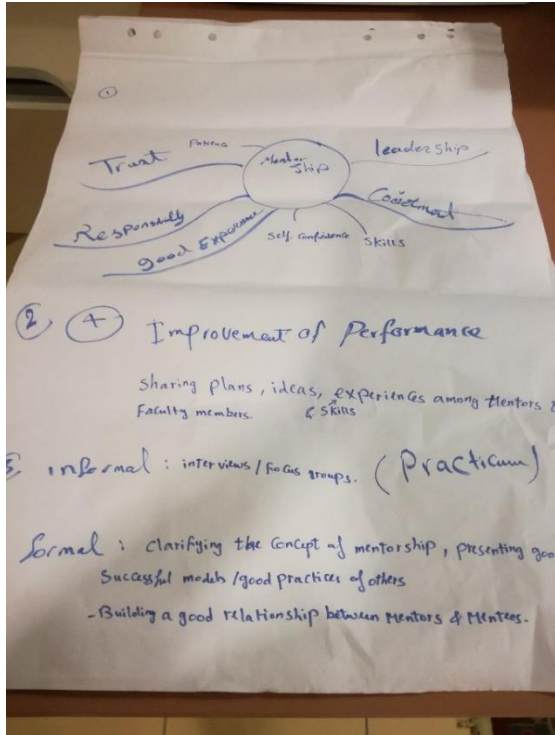 ①
Patience
Mentor
ship
leadership
Trust
Responsibly
good Experience
Self. Confidence
Skills
② + Improvement of Performance
Sharing plans, ideas, experiences among Mentors &
Faculty members. & Skills
informal : interviews / Focus groups. (Practicum)
formal : Clarifying the Concept of mentorship, presenting goo
Successful models / good practices of others
- Building a good relationship between Mentors & Mentees.